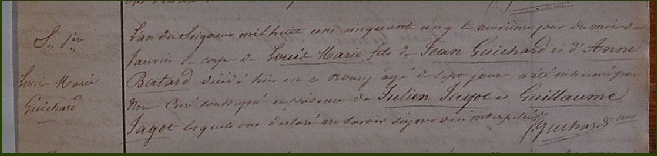 S. 1re
Louis Marie
Guichard
L'an du Seigneur mil huit cent cinquante cinq le neuvième jour du mois de
Janvier le corps de Louis Marie fils de Jean Guichard et d'Anne
Batard décédé hier en ce bourg agé de sept jours a été inhumé par
Nous Curé soussigné en présence de Julien Jagot et Guillaume
Jagot lesquels ont déclaré ne savoir signer de ce interpellés
Guichard